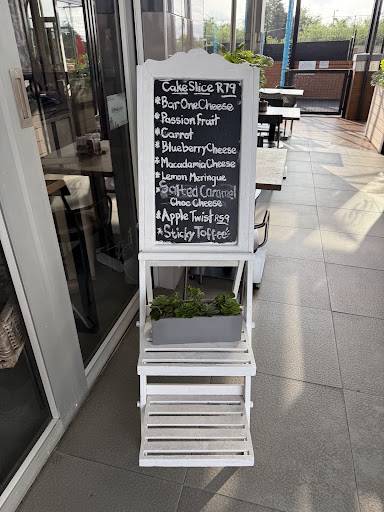 Cake Slice R79
*Bar One Cheese
*Passion Fruit
*Carrot
*Blueberry Cheese
*Macadamia Cheese
*Lemon Meringue
*Salted Caramel
Choc Cheese
*Apple Twist R59
*Sticky Toffee